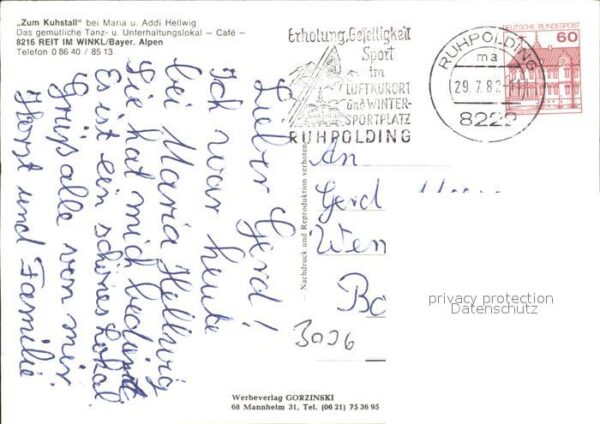 „Zum Kuhstall" bei Maria u. Addi Hellwig
Das gemütliche Tanz- u. Unterhaltungslokal – Café –
8216 REIT IM WINKL/Bayer. Alpen
Telefon 0 86 40 / 85 13
Erholung, Geselligkeit
Sport
im
LUFTKURORT
und WINTER-
SPORTPLATZ
RUHPOLDING
RUHPOLDING
ma
29.7.82
8222
DEUTSCHE BUNDESPOST
60
Lieber Gerd!
Ich war heute
bei Maria Hellwig
Sie hat mich bedient
Es ist ein schönes Lokal
Grüß alle von mir
Horst und Familie
Nachdruck und Reproduktion verboten
An
Gerd
Wen
Bo
privacy protection
Datenschutz
3026
Werbeverlag GORZINSKI
68 Mannheim 31, Tel. (06 21) 75 36 95